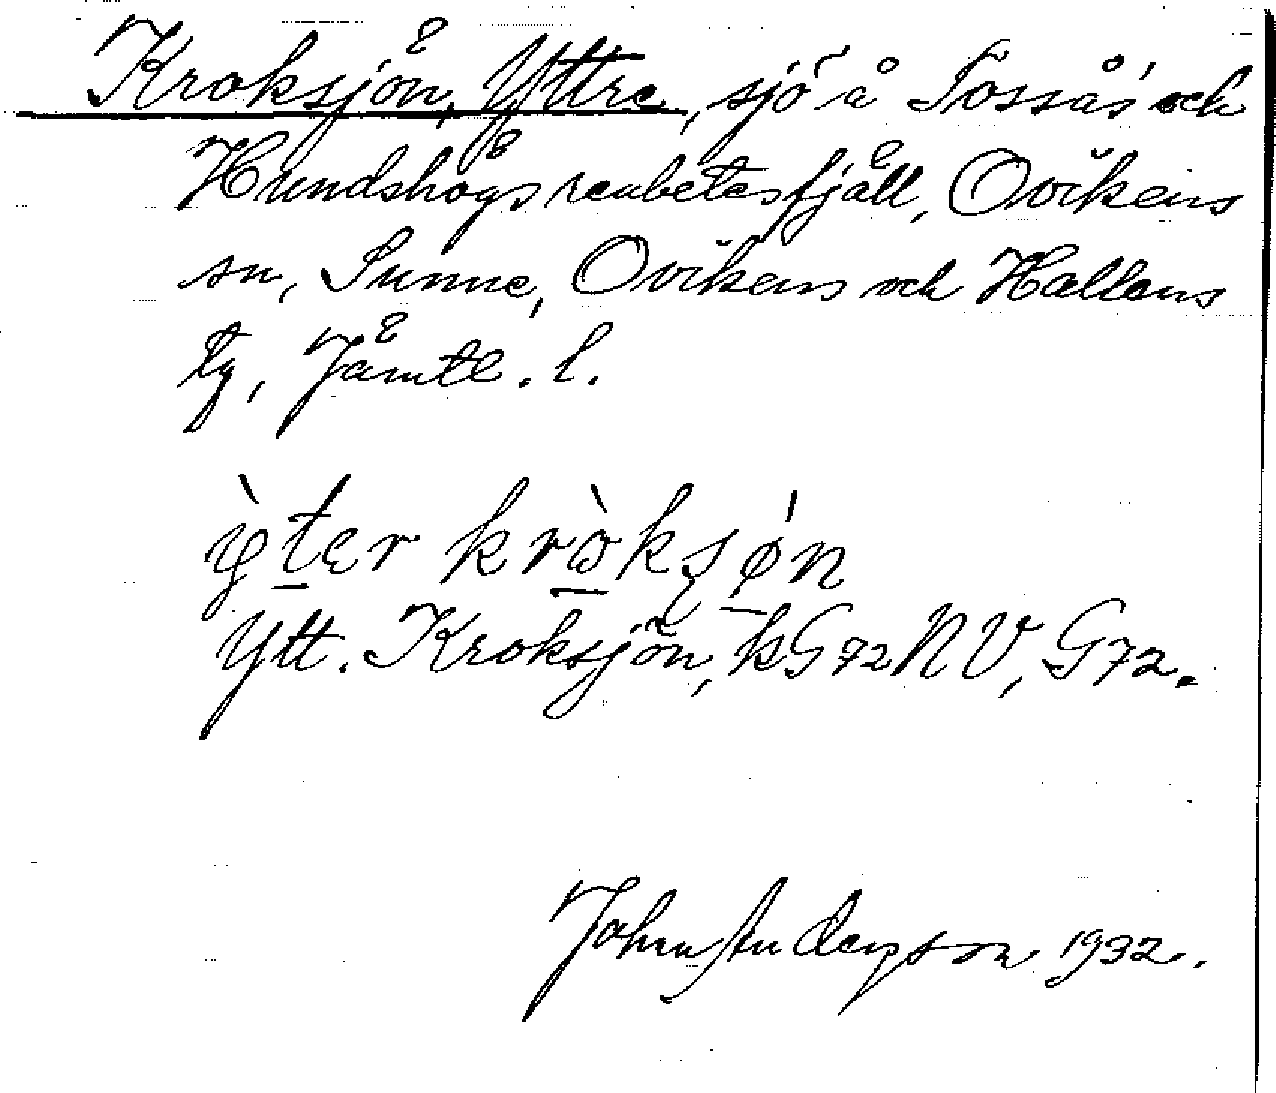 Kroksjön, Yttre, sjö å Tossås' och
Hundshögs renbetesfjäll, Ovikens
sn, Sunne, Ovikens och Hallens
tg, Jämtl. l.
ỳter kròksøn
Ytt. Kroksjön, kG72NV, G72.
John Anderson 1932.